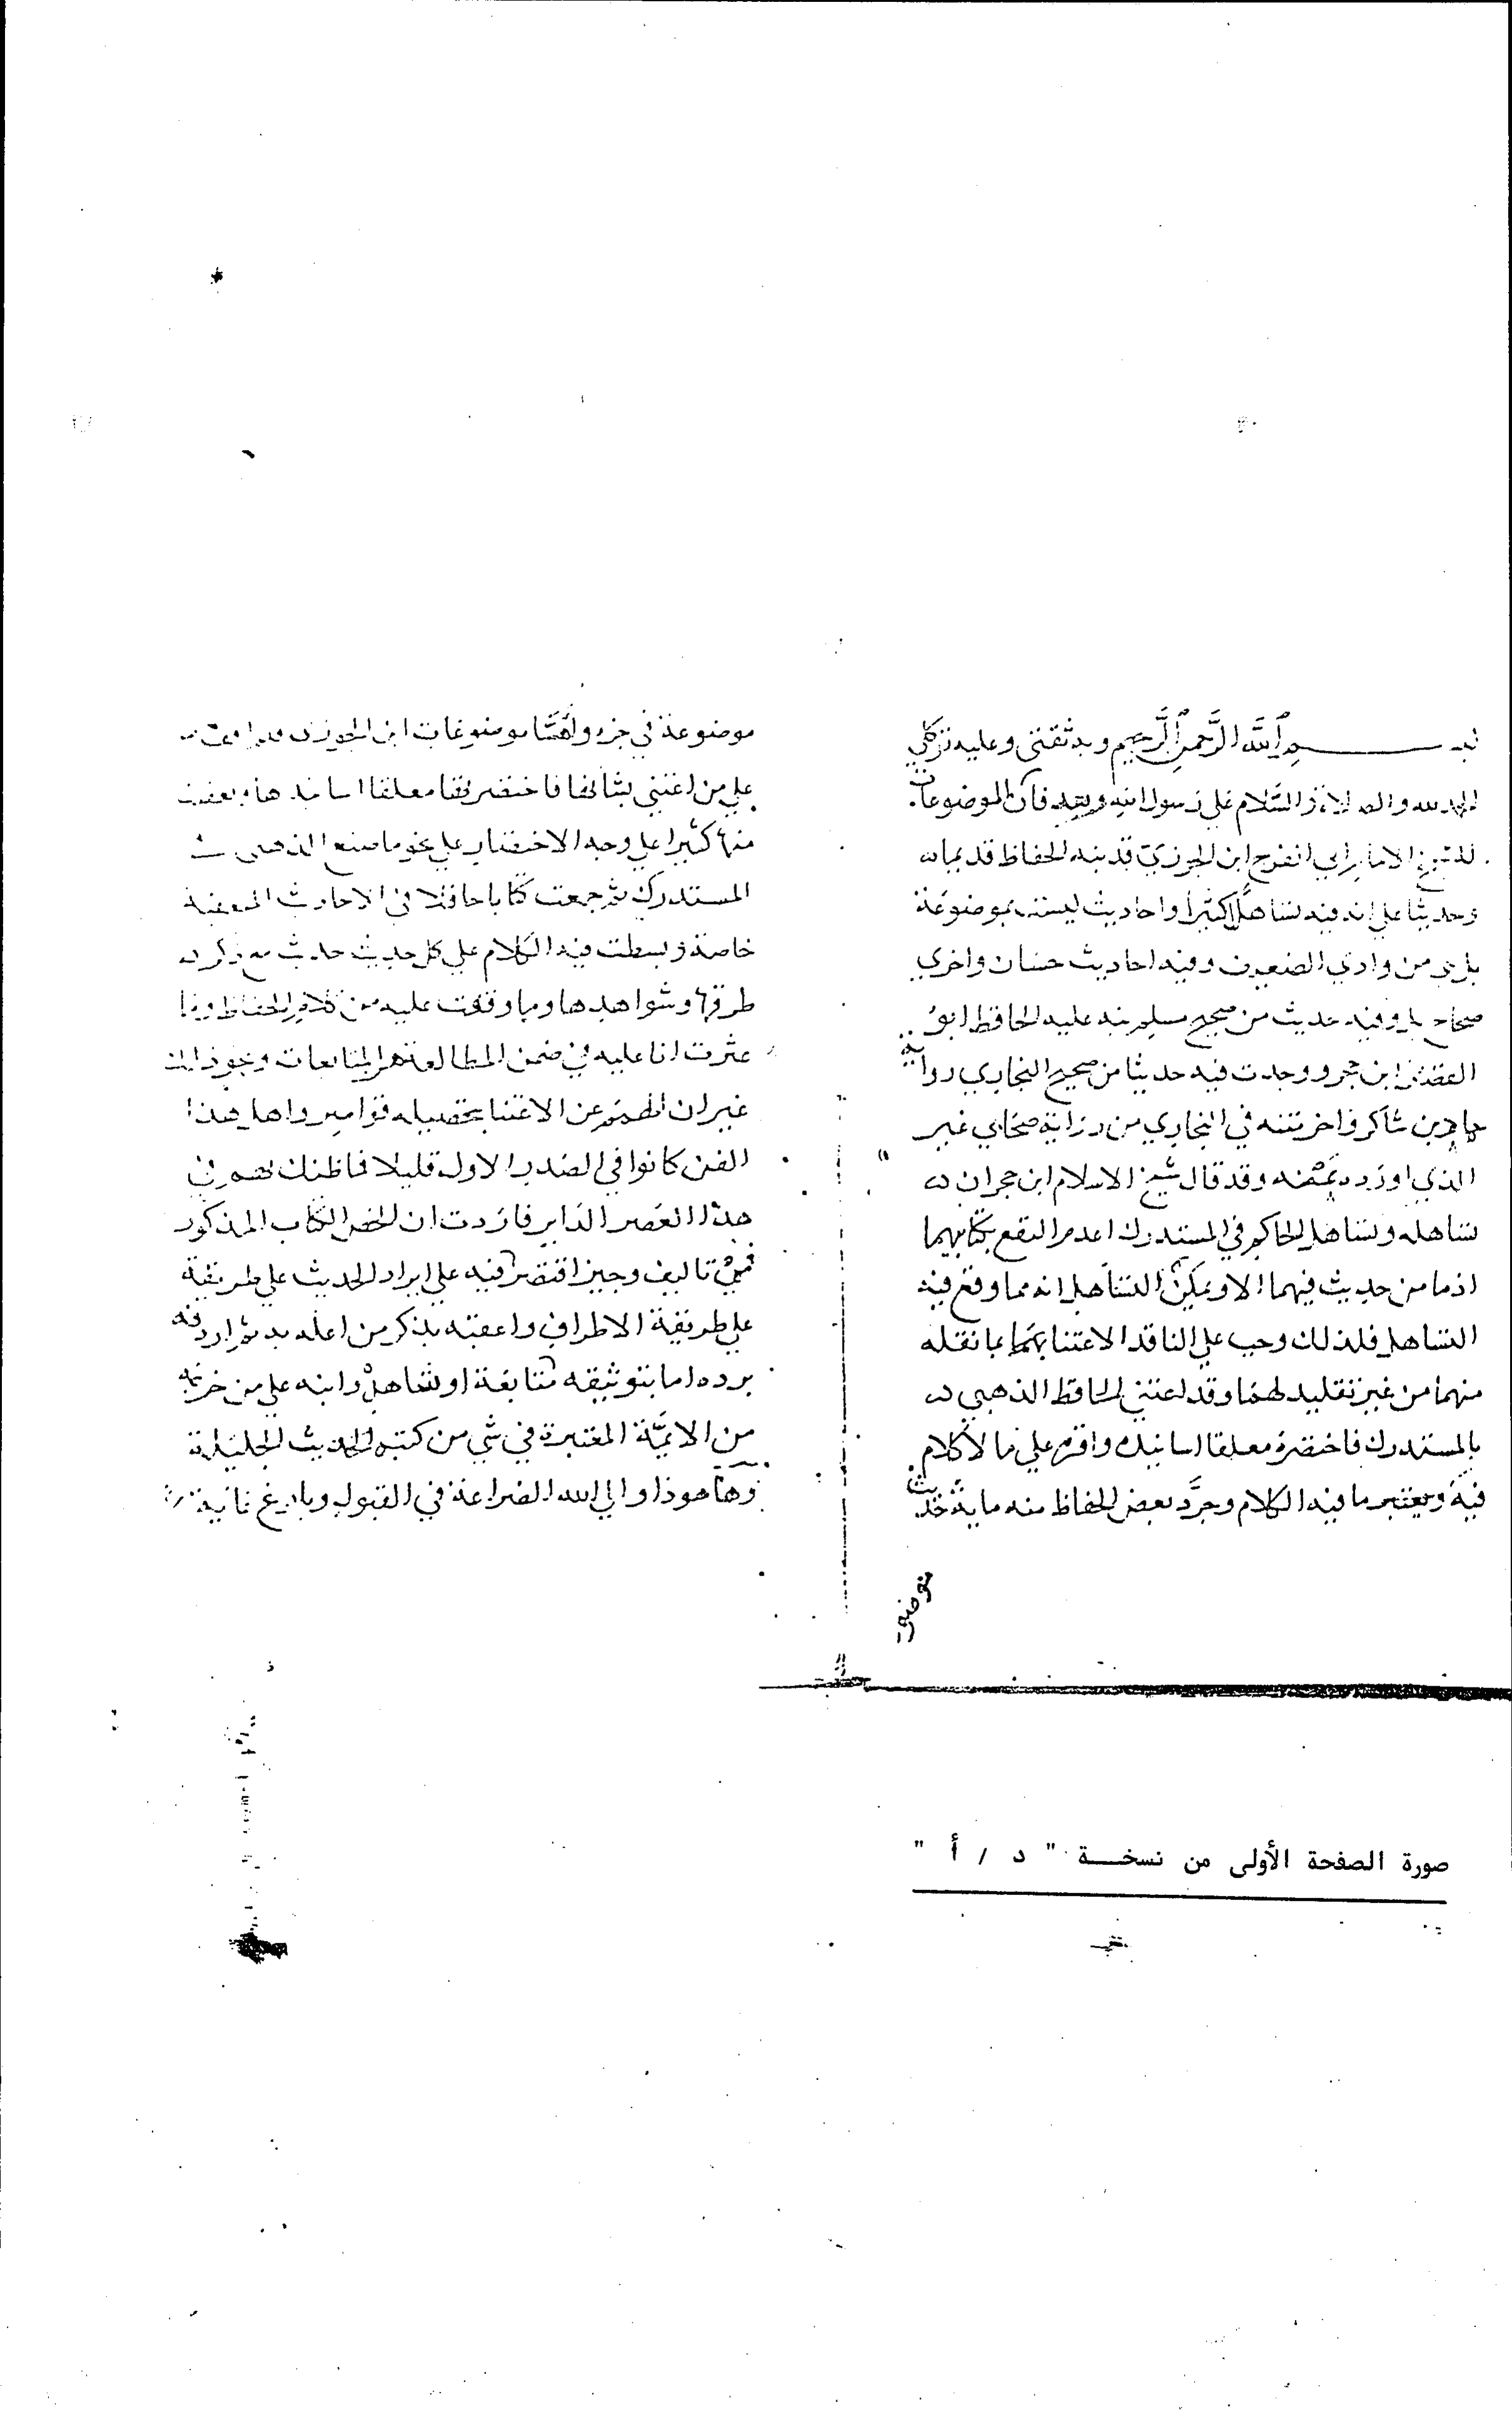 بسم الله الرحمن الرحيم وبه ثقتي وعليه توكلي
الحمد لله والصلاة والسلام على رسول الله وبعد فان الموضوعات
للشيخ الامام ابي الفرج ابن الجوزي قد نبه الحفاظ قديما
وحديثا على ان فيه تساهلا كثيرا واحاديث ليست بموضوعة
بل هي من وادي الضعيف وفيه احاديث حسان واخري
صحاح بل وفيه حديث من صحيح مسلم نبه عليه الحافظ ابو
الفضل ابن حجر ووجدت فيه حديثا من صحيح البخاري رواية
حماد بن شاكر واخر متنه في البخاري من رواية صحابي غير
الذي اورده عنه وقد قال شيخ الاسلام ابن حجر ان
تساهله وتساهل الحاكم في المستدرك اعدم النفع بكتابيهما
اذ ما من حديث فيهما الا ويمكن التساهل انه مما وقع فيه
التساهل فلذلك وجب علي الناقد الاعتنا بما نقله
منهما من غير تقليد لهما وقد اعتني الحافظ الذهبي
بالمستدرك فاختصره معلقا اسانيده واقره علي ما لا كلام
فيه وتعقب ما فيه الكلام وجرد بعض الحفاظ منه ماية حديث
موضوعة
موضوعة في جزء واما موضوعات ابن الجوزي فلم
علي من اعتني بشانها فاختصرتها معلقا اسانيدها وتعقبت
منها كثيرا علي وجه الاختصار علي نحو ما صنع الذهبي في
المستدرك ثم جمعت كتابا حافلا في الاحاديث المتعقبة
خاصة وبسطت فيه الكلام علي كل حديث حديث مع ذكر
طرقها وشواهدها وما وقفت عليه من كلام الحفاظ وما
عثرت انا عليه في ضمن المطالعة من المتابعات ونحو ذلك
غير ان الهمم عن الاعتنا بتحصيله قواصر واهل هذا
الفن كانوا في الصدر الاول قليلا فما ظنك بهم في
هذا العصر الداير فاردت ان الخص الكتاب المذكور
في تاليف وجيز اقتصر فيه علي ايراد الحديث علي طريقة
علي طريقة الاطراف واعقبه بذكر من اعله به ثم اردفه
برده اما بتوثيقه متابعة او شاهد وانبه علي من خرجه
من الايمة المعتبرة في شي من كتب الحديث الجليلة
وها هو ذا والي الله الضراعة في القبول وبلوغ
صورة الصفحة الأولى من نسخة " د / أ "